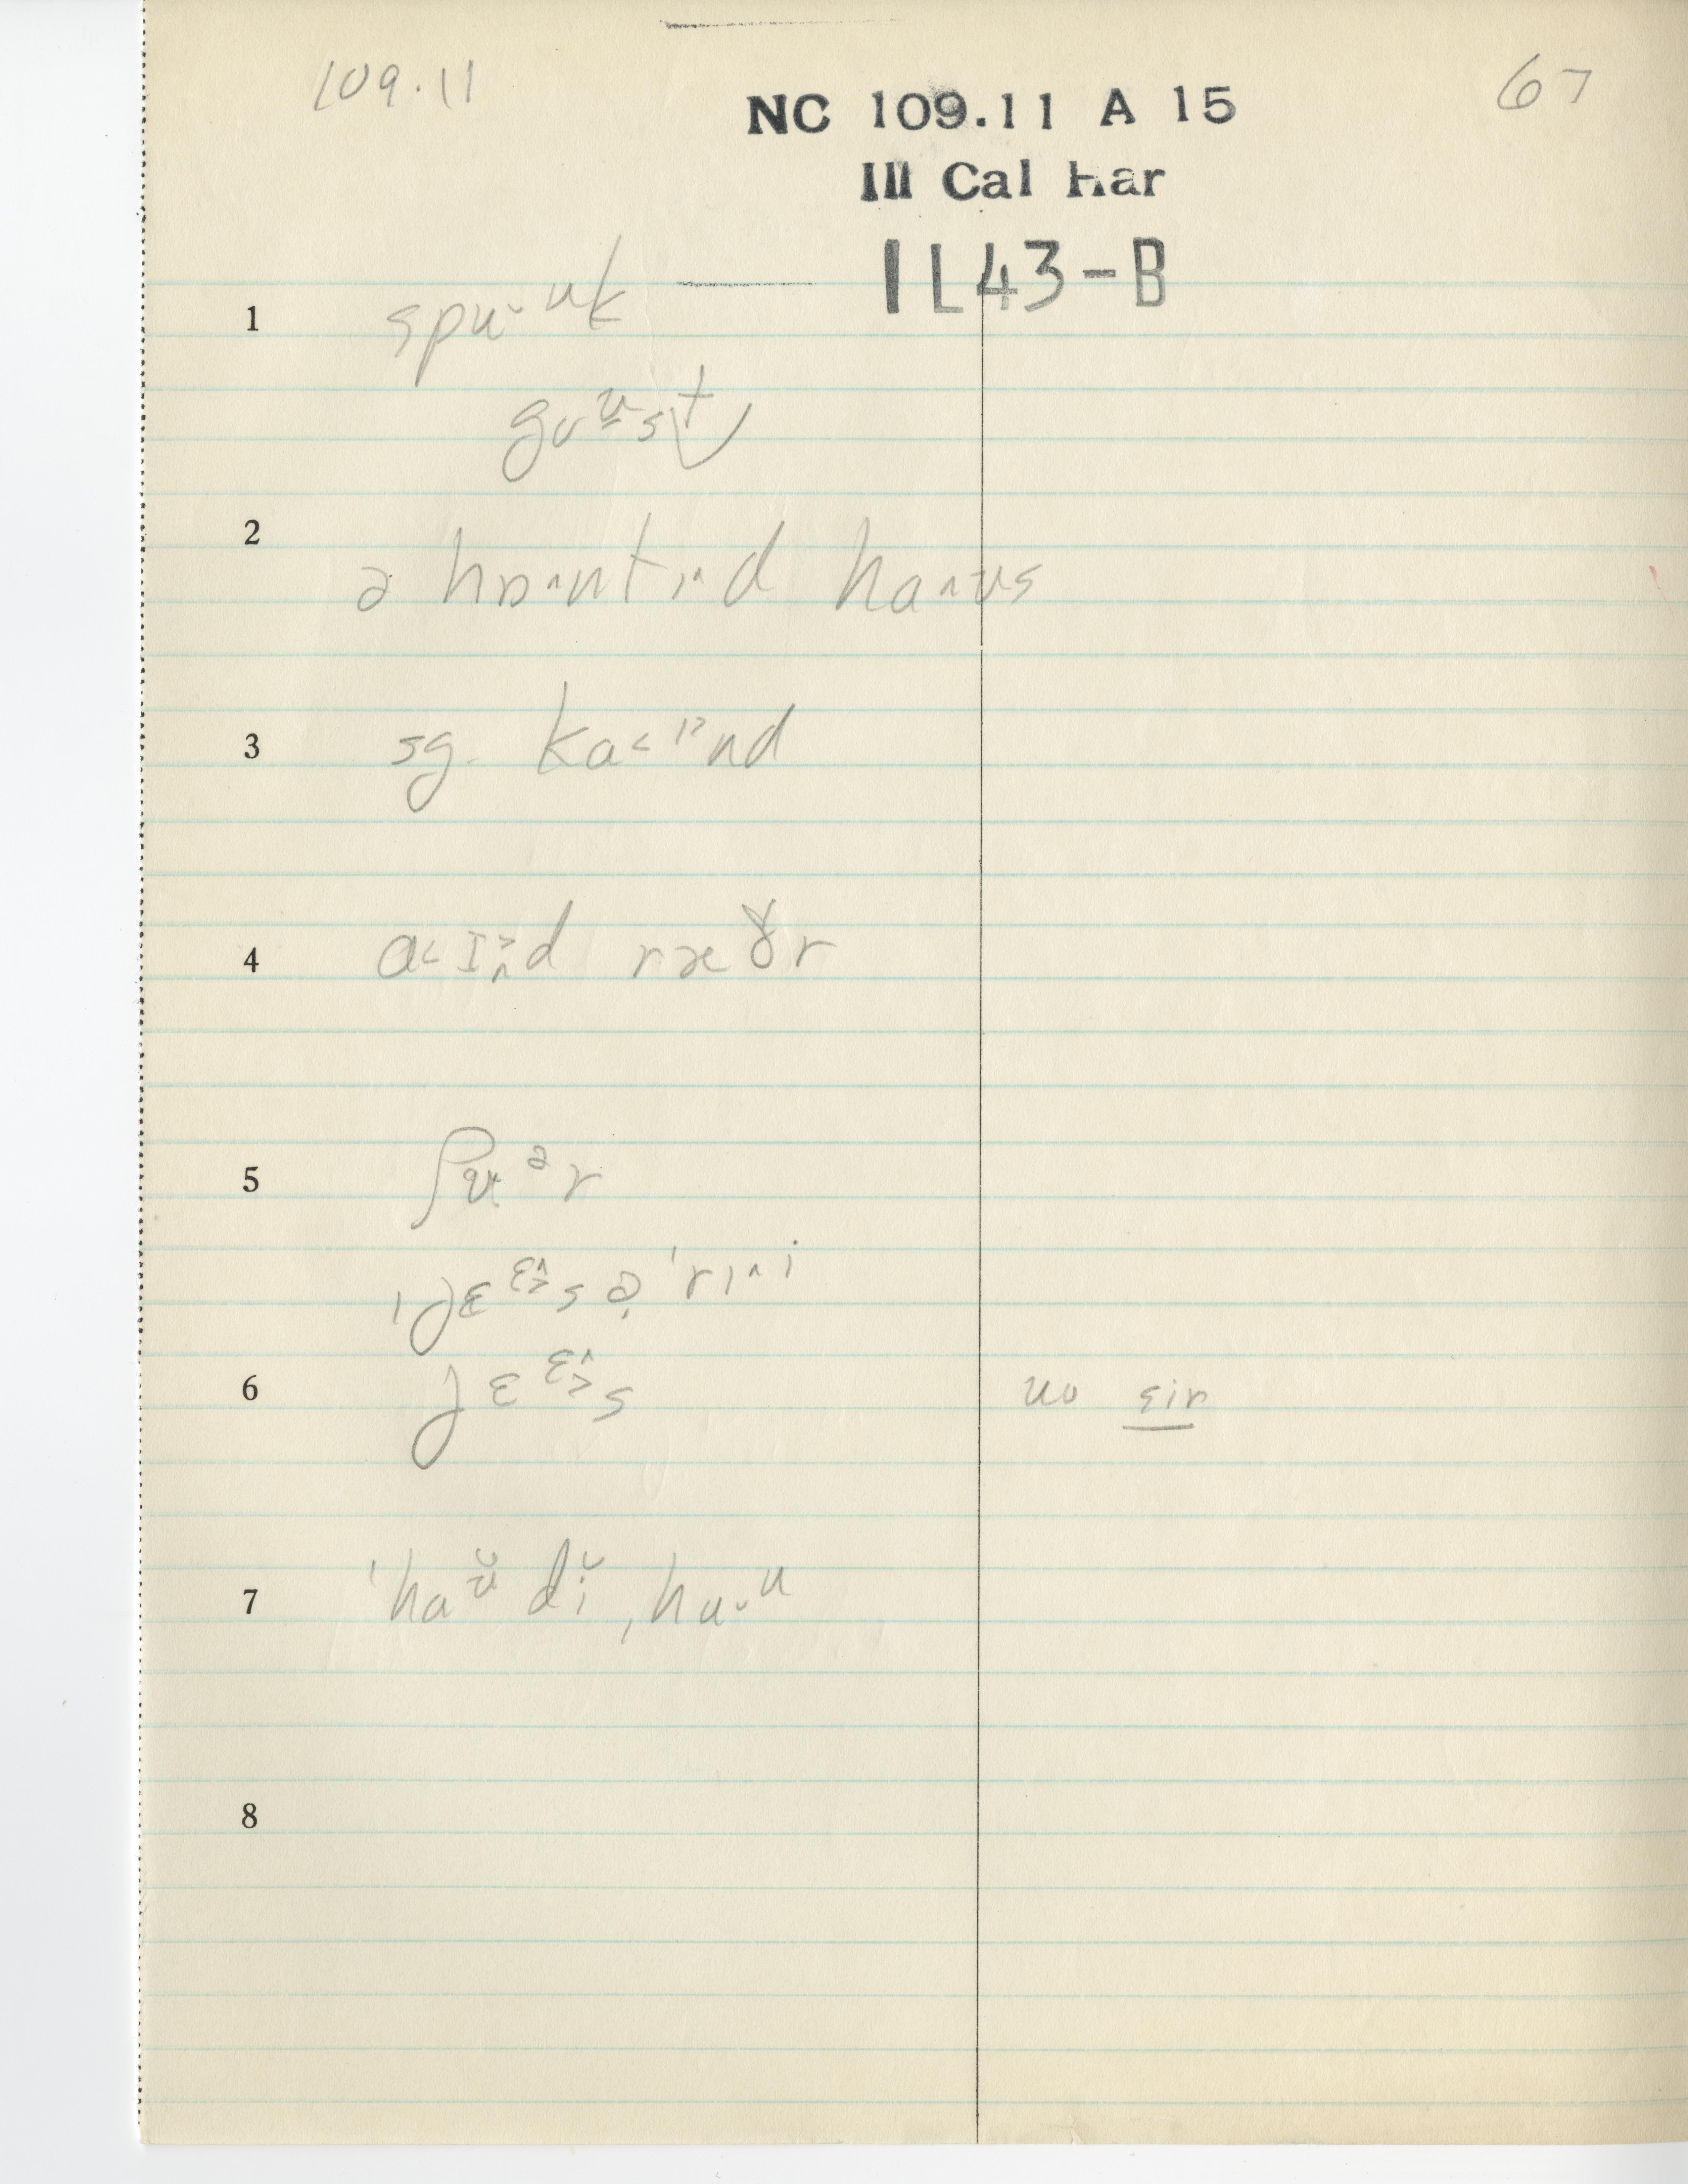 109.11
67
NC 109.11 A 15
Ill Cal Har
IL43-B
1 spu˗ᵘk
goᶷst
2 ə hɒ˄ntɪ˄d ha˄ʊs
3 sg. ka˂ᶦ˃nd
4 a˂ɪ˃d ræðr
5 ʃʊᵊr
ˌjɛᵋsəˈrɪ˄i
6 jɛᵋs no sir
7 ˈhaᶷ̆ dĭ ˌhu˗ᵘ
8